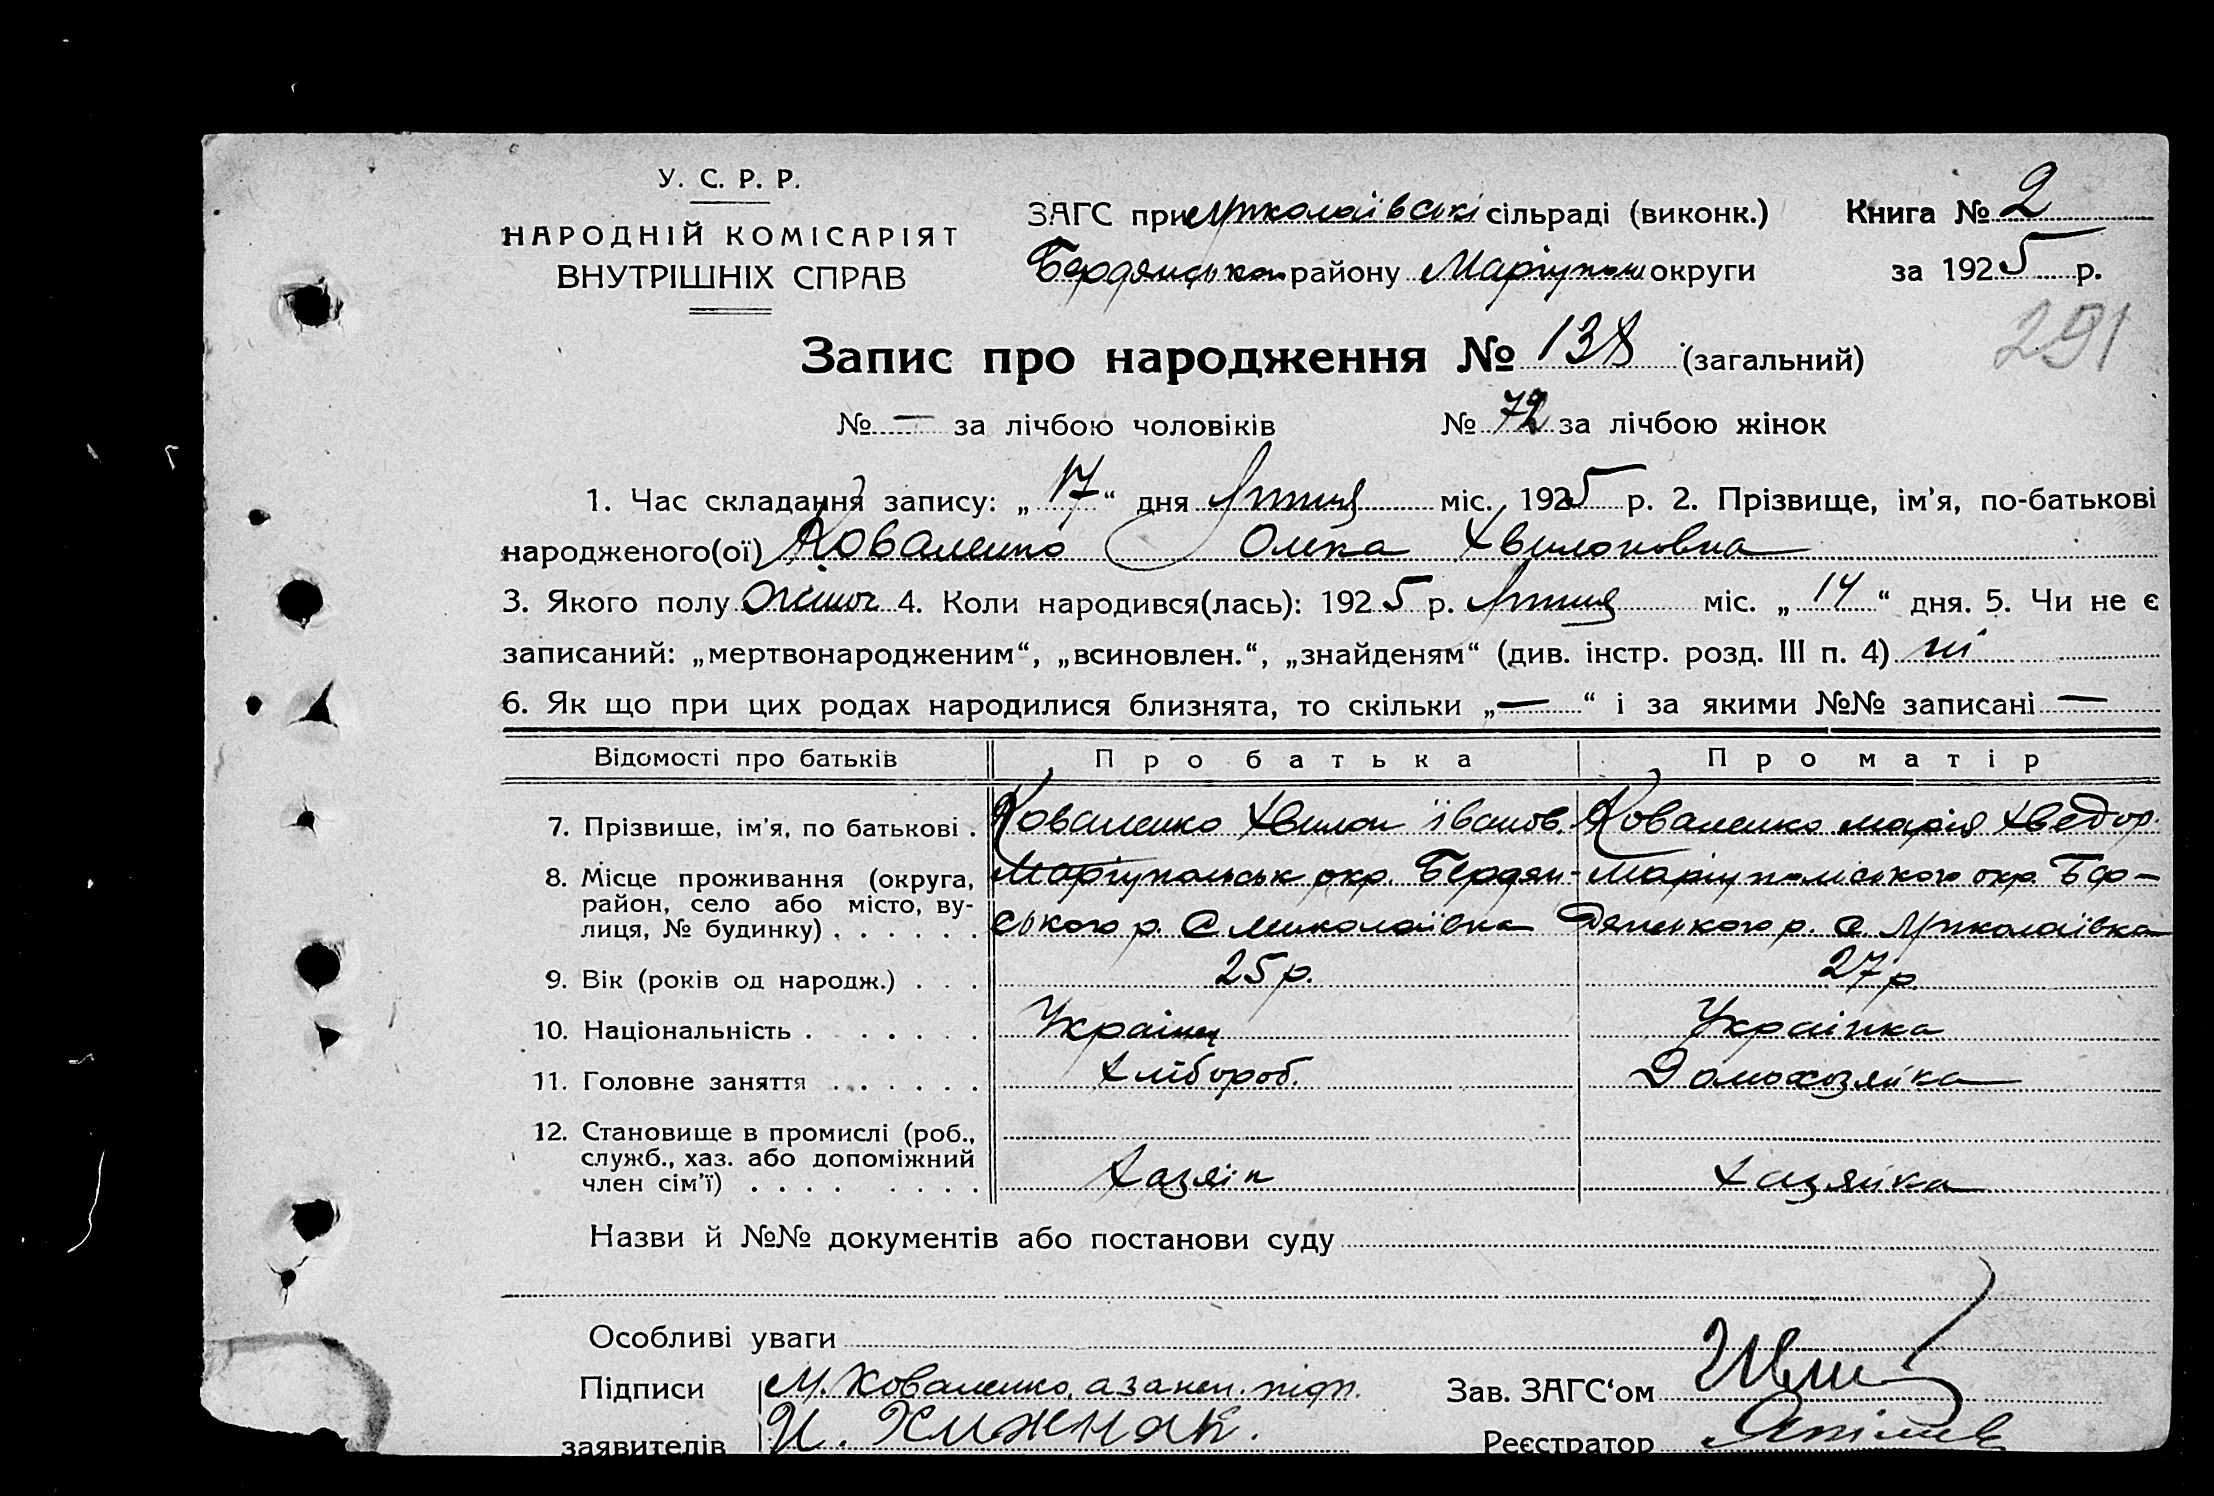 У. С. Р. Р.
НАРОДНІЙ КОМІСАРІЯТ
ВНУТРІШНІХ СПРАВ
ЗАГС при Миколаївські сільраді (виконк.) Книга № 2
Бердянськом району Маріупол округи за 1925 р.
291
Запис про народження № 138 (загальний)
№ — за лічбою чоловіків № 72 за лічбою жінок
1. Час складання запису: „17“ дня Липця міс. 1925 р. 2. Прізвище, ім'я, по-батькові
народженого(ої) Коваленко Олена Хвилоновна
3. Якого полу жіноч 4. Коли народився(лась): 1925 р. Липця міс. „14“ дня. 5. Чи не є
записаний: „мертвонародженим“, „всиновлен.“, „знайденям“ (див. інстр. розд. III п. 4) ні
6. Як що при цих родах народилися близнята, то скільки „—“ і за якими №№ записані —
Відомості про батьків Про батька Про матір
7. Прізвище, ім'я, по батькові . Коваленко Хвилон Іванов. Коваленко Марія Хведор.
8. Місце проживання (округа, район, село або місто, вулиця, № будинку) . . . . . . Маріупольськ окр. Бердян-ського р. с Миколаївка Маріупольського окр. Бер-дянського р. с. Миколаївка
9. Вік (років од народж.) . . . 25 р. 27 р
10. Національність . . . . . . Українец Українка
11. Головне заняття . . . . . . Хлібороб. Домохозяйка
12. Становище в промислі (роб., служб., хаз. або допоміжний член сім'ї) . . . . . . . . Хазяїн Хазяйка
Назви й №№ документів або постанови суду
Особливі уваги
Підписи М. Коваленко, а за неп. підп. Зав. ЗАГС'ом
заявителів И. Хижняк. Реєстратор